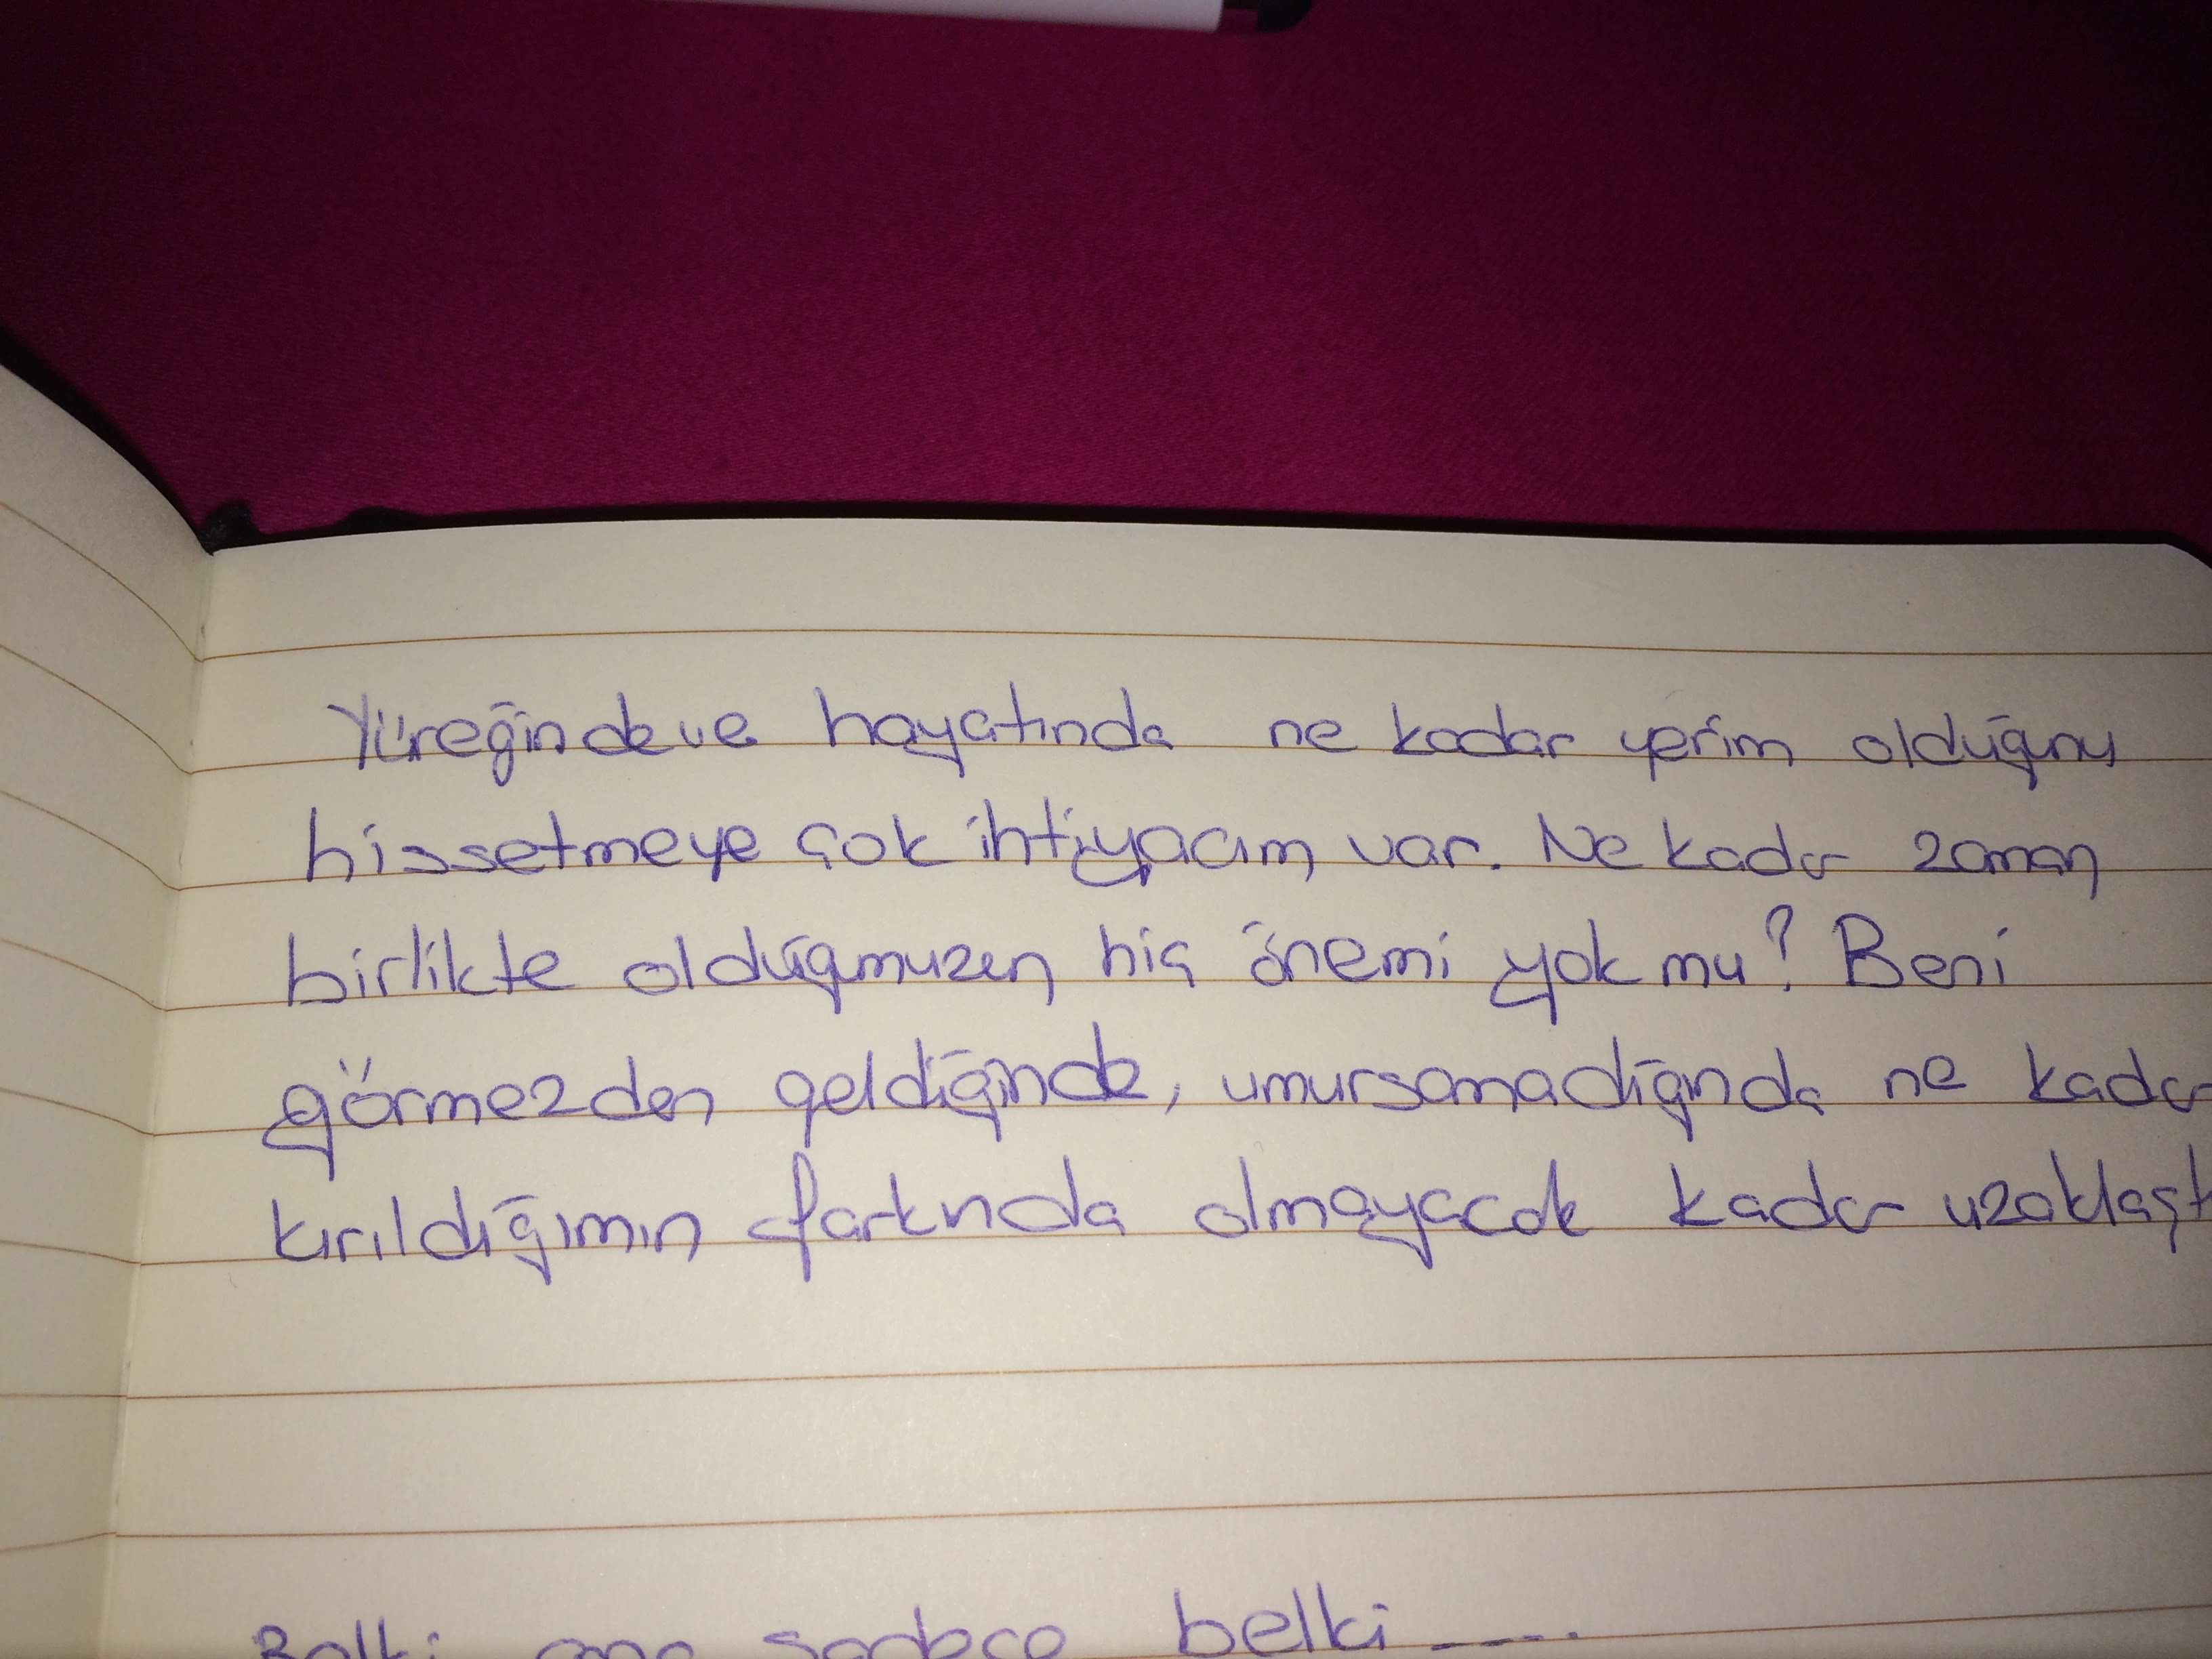 Yüreğinde ve hayatında ne kadar yerim olduğunu
hissetmeye çok ihtiyacım var. Ne kadar zaman
birlikte olduğumuzun hiç önemi yok mu? Beni
görmezden geldiğinde, umursamadığında ne kadar
kırıldığımın farkında olmayacak kadar uzaklaşt
Belki ama sadece belki .....